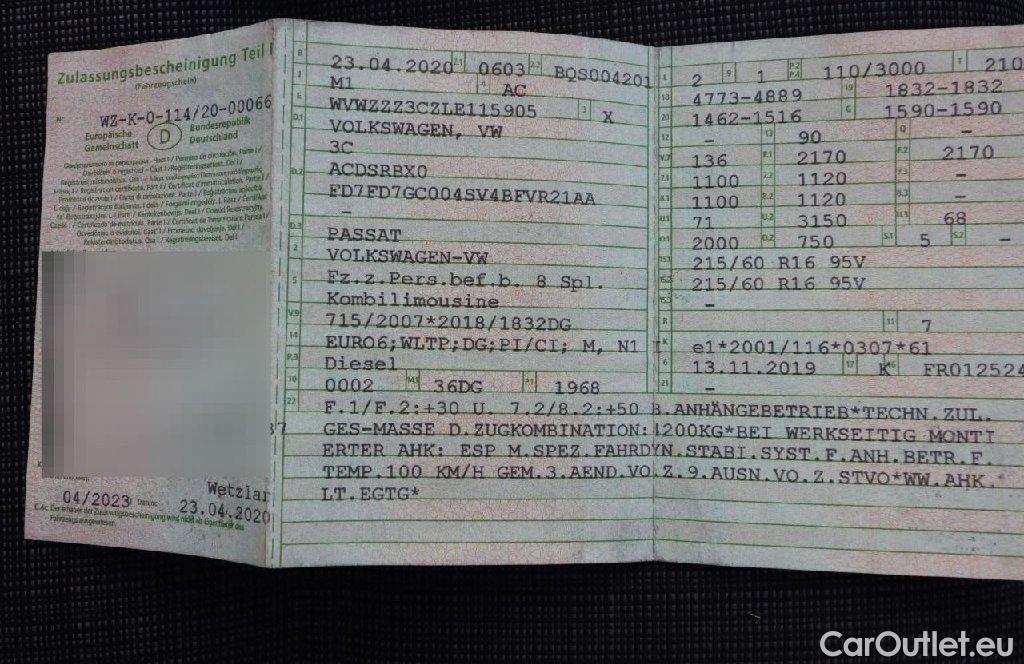 Zulassungsbescheinigung Teil I
(Fahrzeugschein)
Nr. WZ-K-0-114/20-00066
Europäische Gemeinschaft D Bundesrepublik Deutschland
Wetzlar
04/2023 Datum: 23.04.2020
B 23.04.2020 2.1 0603 2.2 BQS004201
J M1 4 AC
E WVWZZZ3CZLE115905 3 X
D.1 VOLKSWAGEN, VW
3C
D.2 ACDSRBX0
FD7FD7GC004SV4BFVR21AA
–
D.3 PASSAT
2 VOLKSWAGEN-VW
5 Fz.z.Pers.bef.b. 8 Spl.
Kombilimousine
V.9 715/2007*2018/1832DG
14 EURO6;WLTP;DG;PI/CI; M, N1 I
P.3 Diesel
10 0002 14.1 36DG P.1 1968
L 2 9 1 P.2 P.4 110/3000 T 210
18 4773-4889 19 1832-1832
20 1462-1516 G 1590-1590
12 – 13 90 Q –
V.7 136 F.1 2170 F.2 2170
7.1 1100 7.2 1120 7.3 –
8.1 1100 8.2 1120 8.3 –
U.1 71 U.2 3150 U.3 68
O.1 2000 O.2 750 S.1 5 S.2 –
15.1 215/60 R16 95V
15.2 215/60 R16 95V
15.3 –
R 11 7
K e1*2001/116*0307*61
6 13.11.2019 17 K 16 FR012524
21 –
22 F.1/F.2:+30 U. 7.2/8.2:+50 B.ANHÄNGEBETRIEB*TECHN.ZUL.
GES-MASSE D.ZUGKOMBINATION:4200KG*BEI WERKSEITIG MONTI
ERTER AHK: ESP M.SPEZ.FAHRDYN.STABI.SYST.F.ANH.BETR.F.
TEMP.100 KM/H GEM.3.AEND.VO.Z.9.AUSN.VO.Z.STVO*WW.AHK
LT.EGTG*
CarOutlet.eu